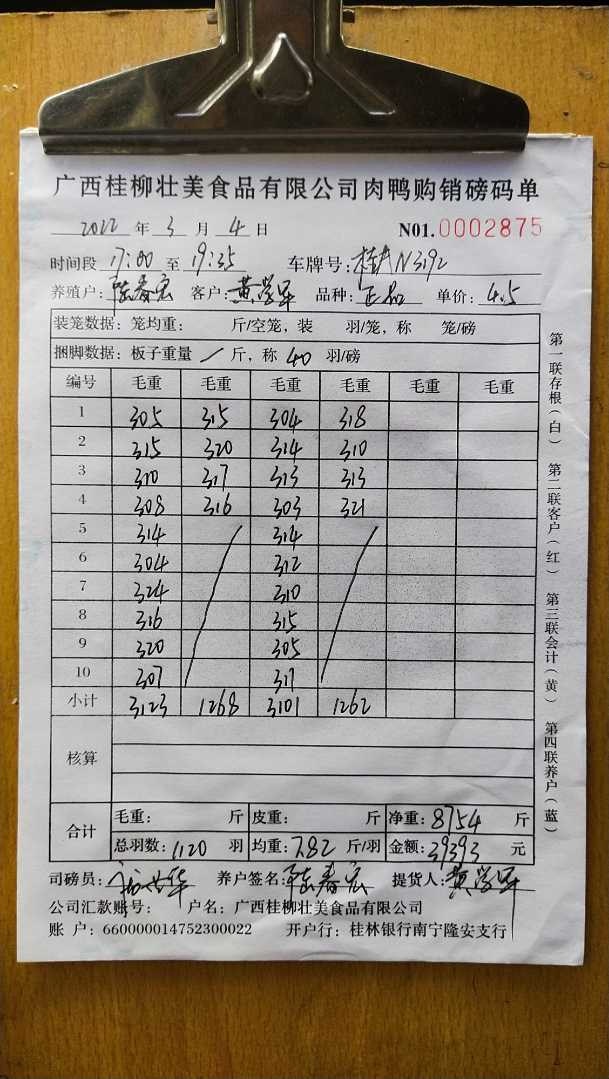 广西桂柳壮美食品有限公司肉鸭购销磅码单
2022 年 3 月 4 日 N01.0002875
时间段 17:00 至 19:35 车牌号: 桂 N3192
养殖户: 陆春宏 客户: 黄学军 品种: 正品 单价: 4.5
装笼数据: 笼均重: 斤/空笼, 装 羽/笼, 称 笼/磅
捆脚数据: 板子重量 / 斤, 称 40 羽/磅
编号 毛重 毛重 毛重 毛重 毛重 毛重
1 305 315 304 318
2 315 320 314 310
3 310 317 313 313
4 308 316 303 321
5 314 314
6 304 312
7 324 310
8 316 315
9 320 305
10 307 317
小计 3123 1268 3101 1262
核算
合计 毛重: 斤 皮重: 斤 净重: 8754 斤
总羽数: 1120 羽 均重: 7.82 斤/羽 金额: 39393 元
司磅员: 养户签名: 陆春宏 提货人: 黄学军
公司汇款账号: 户名: 广西桂柳壮美食品有限公司
账 户: 660000014752300022 开户行: 桂林银行南宁隆安支行
第一联存根(白) 第二联客户(红) 第三联会计(黄) 第四联养户(蓝)